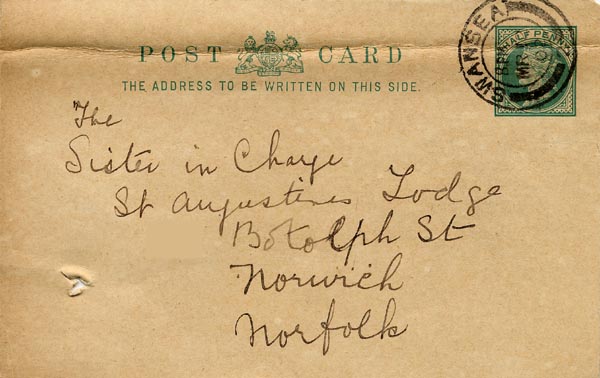 HALF PENNY
SWANSEA
MR
POST CARD
THE ADDRESS TO BE WRITTEN ON THIS SIDE.
The
Sister in Charge
St Augustines Lodge
Botolph St
Norwich
Norfolk